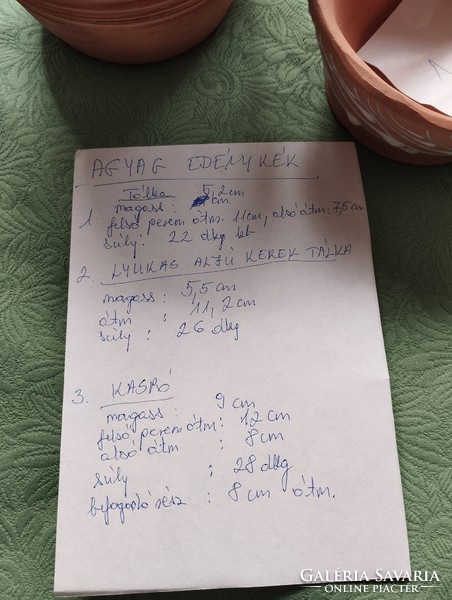 AGYAG EDÉNYKÉK
1. Tálka
magass: 5,2 cm
felső perem átm: 11cm, alsó átm: 7,5 cm
súly: 22 dkg
2. LYUKAS ALJÚ KEREK TÁLKA
magass: 5,5 cm
átm : 11,2 cm
súly : 26 dkg
3. KASPÓ
magass: 9 cm
felső perem átm: 12 cm
alsó átm : 8 cm
súly : 28 dkg
befogadó rész : 8 cm átm.
GALÉRIA SAVARIA
ONLINE PIACTÉR